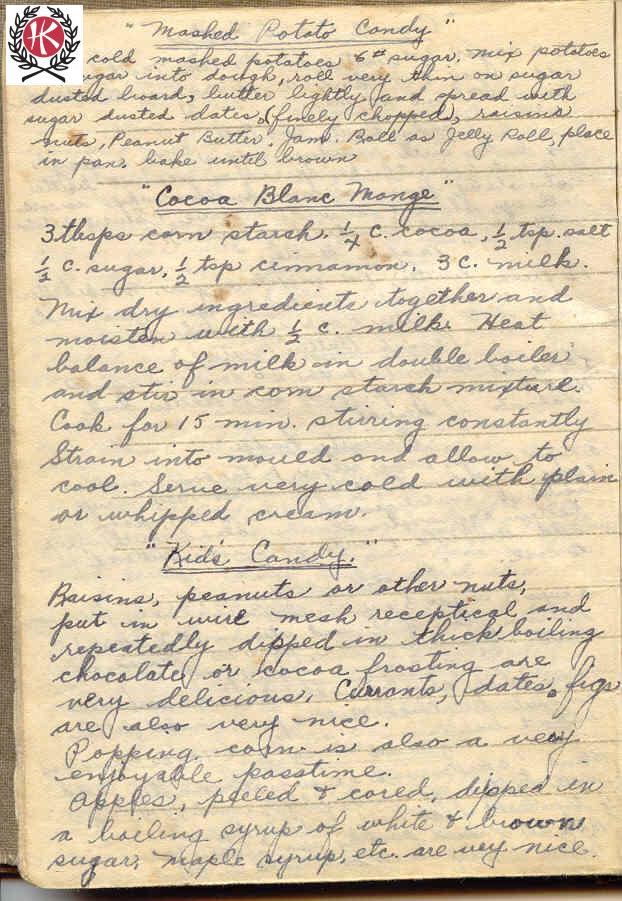 K
"Mashed Potato Candy"
cold mashed potatoes 6# sugar. mix potatoes
sugar into dough, roll very thin on sugar
dusted board, butter lightly and spread with
sugar dusted dates, (finely chopped), raisins
nuts, Peanut Butter, Jam. Roll as Jelly Roll, place
in pan. bake until brown
"Cocoa Blanc Monge"
3 tbsps corn starch. 1/4 c. cocoa, 1/2 tsp. salt
1/2 c. sugar, 1/2 tsp cinnamon. 3 c. milk.
Mix dry ingredients together and
moisten with 1/2 c. milk. Heat
balance of milk in double boiler
and stir in corn starch mixture.
Cook for 15 min. stirring constantly
Strain into mould and allow to
cool. Serve very cold with plain
or whipped cream.
"Kid's Candy."
Raisins, peanuts or other nuts,
put in wire mesh receptical and
repeatedly dipped in thick boiling
chocolate or cocoa frosting are
very delicious. Currants, dates, figs
are also very nice.
Popping corn is also a very
enjoyable passtime.
Apples, pieled & cored, dipped in
a boiling syrup of white & brown
sugar, maple syrup, etc. are very nice.